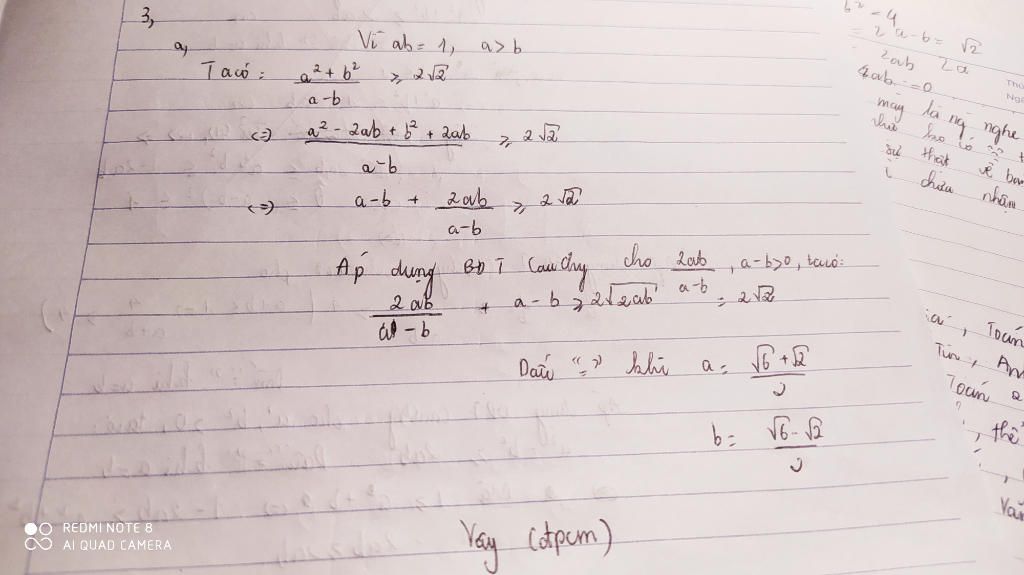 3,
a, Vì ab = 1, a > b
Ta có: (a² + b²)/(a-b) ≥ 2√2
<=> (a² - 2ab + b² + 2ab)/(a-b) ≥ 2√2
<=> a-b + 2ab/(a-b) ≥ 2√2
Áp dụng BĐT Cauchy cho 2ab/(a-b), a-b>0, ta có:
2ab/(a-b) + a-b ≥ 2√2ab = 2√2
Dấu "=" khi a = (√6+√2)/2
b = (√6-√2)/2
Vậy (đpcm)
b² = 4
= 2 a-b = √2
2ab 2a
4ab = 0
mày là ng nghe
sự thật về
chưa nhận
, Toán
Tin, An
Toán 2
, thể
Văn
REDMI NOTE 8
AI QUAD CAMERA